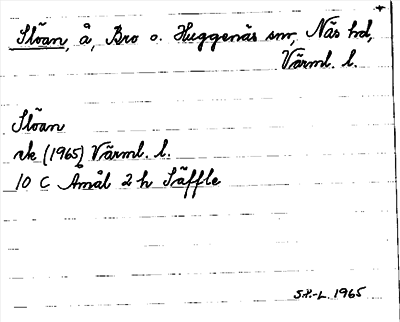 Slöan, å, Bro o. Huggenäs snr, Näs hd,
Värml. l.
Slöan
rk (1965) Värml. l.
10 C Åmål 2 h Säffle
S.H.-L. 1965